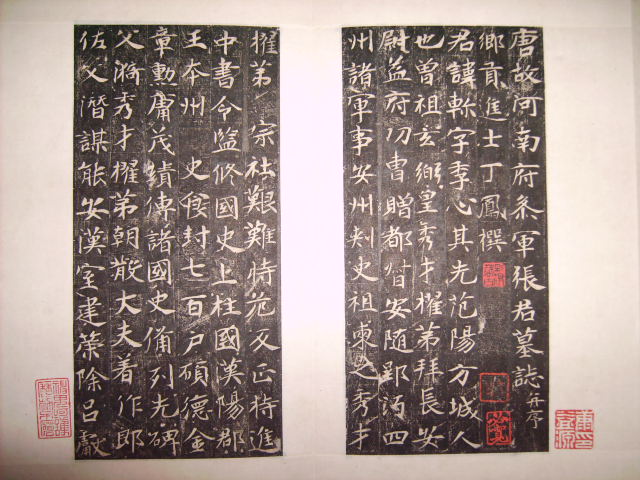 唐故河南府叅軍張君墓誌并序
鄉貢進士丁鳳撰
君諱軫字季心其先范陽方城人
也曾祖玄弼皇秀才擢第拜長安
尉益府功曹贈都督安隨郢沔四
州諸軍事安州刺史祖柬之秀才
擢第 宗社艱難持危反正特進
中書令監修國史上柱國漢陽郡
王本州 史 封七百戶碩德金
章勳庸茂績傳諸國史備列先碑
父漪秀才擢第朝散大夫著作郎
佐父潛謀能安漢室建策除呂獻